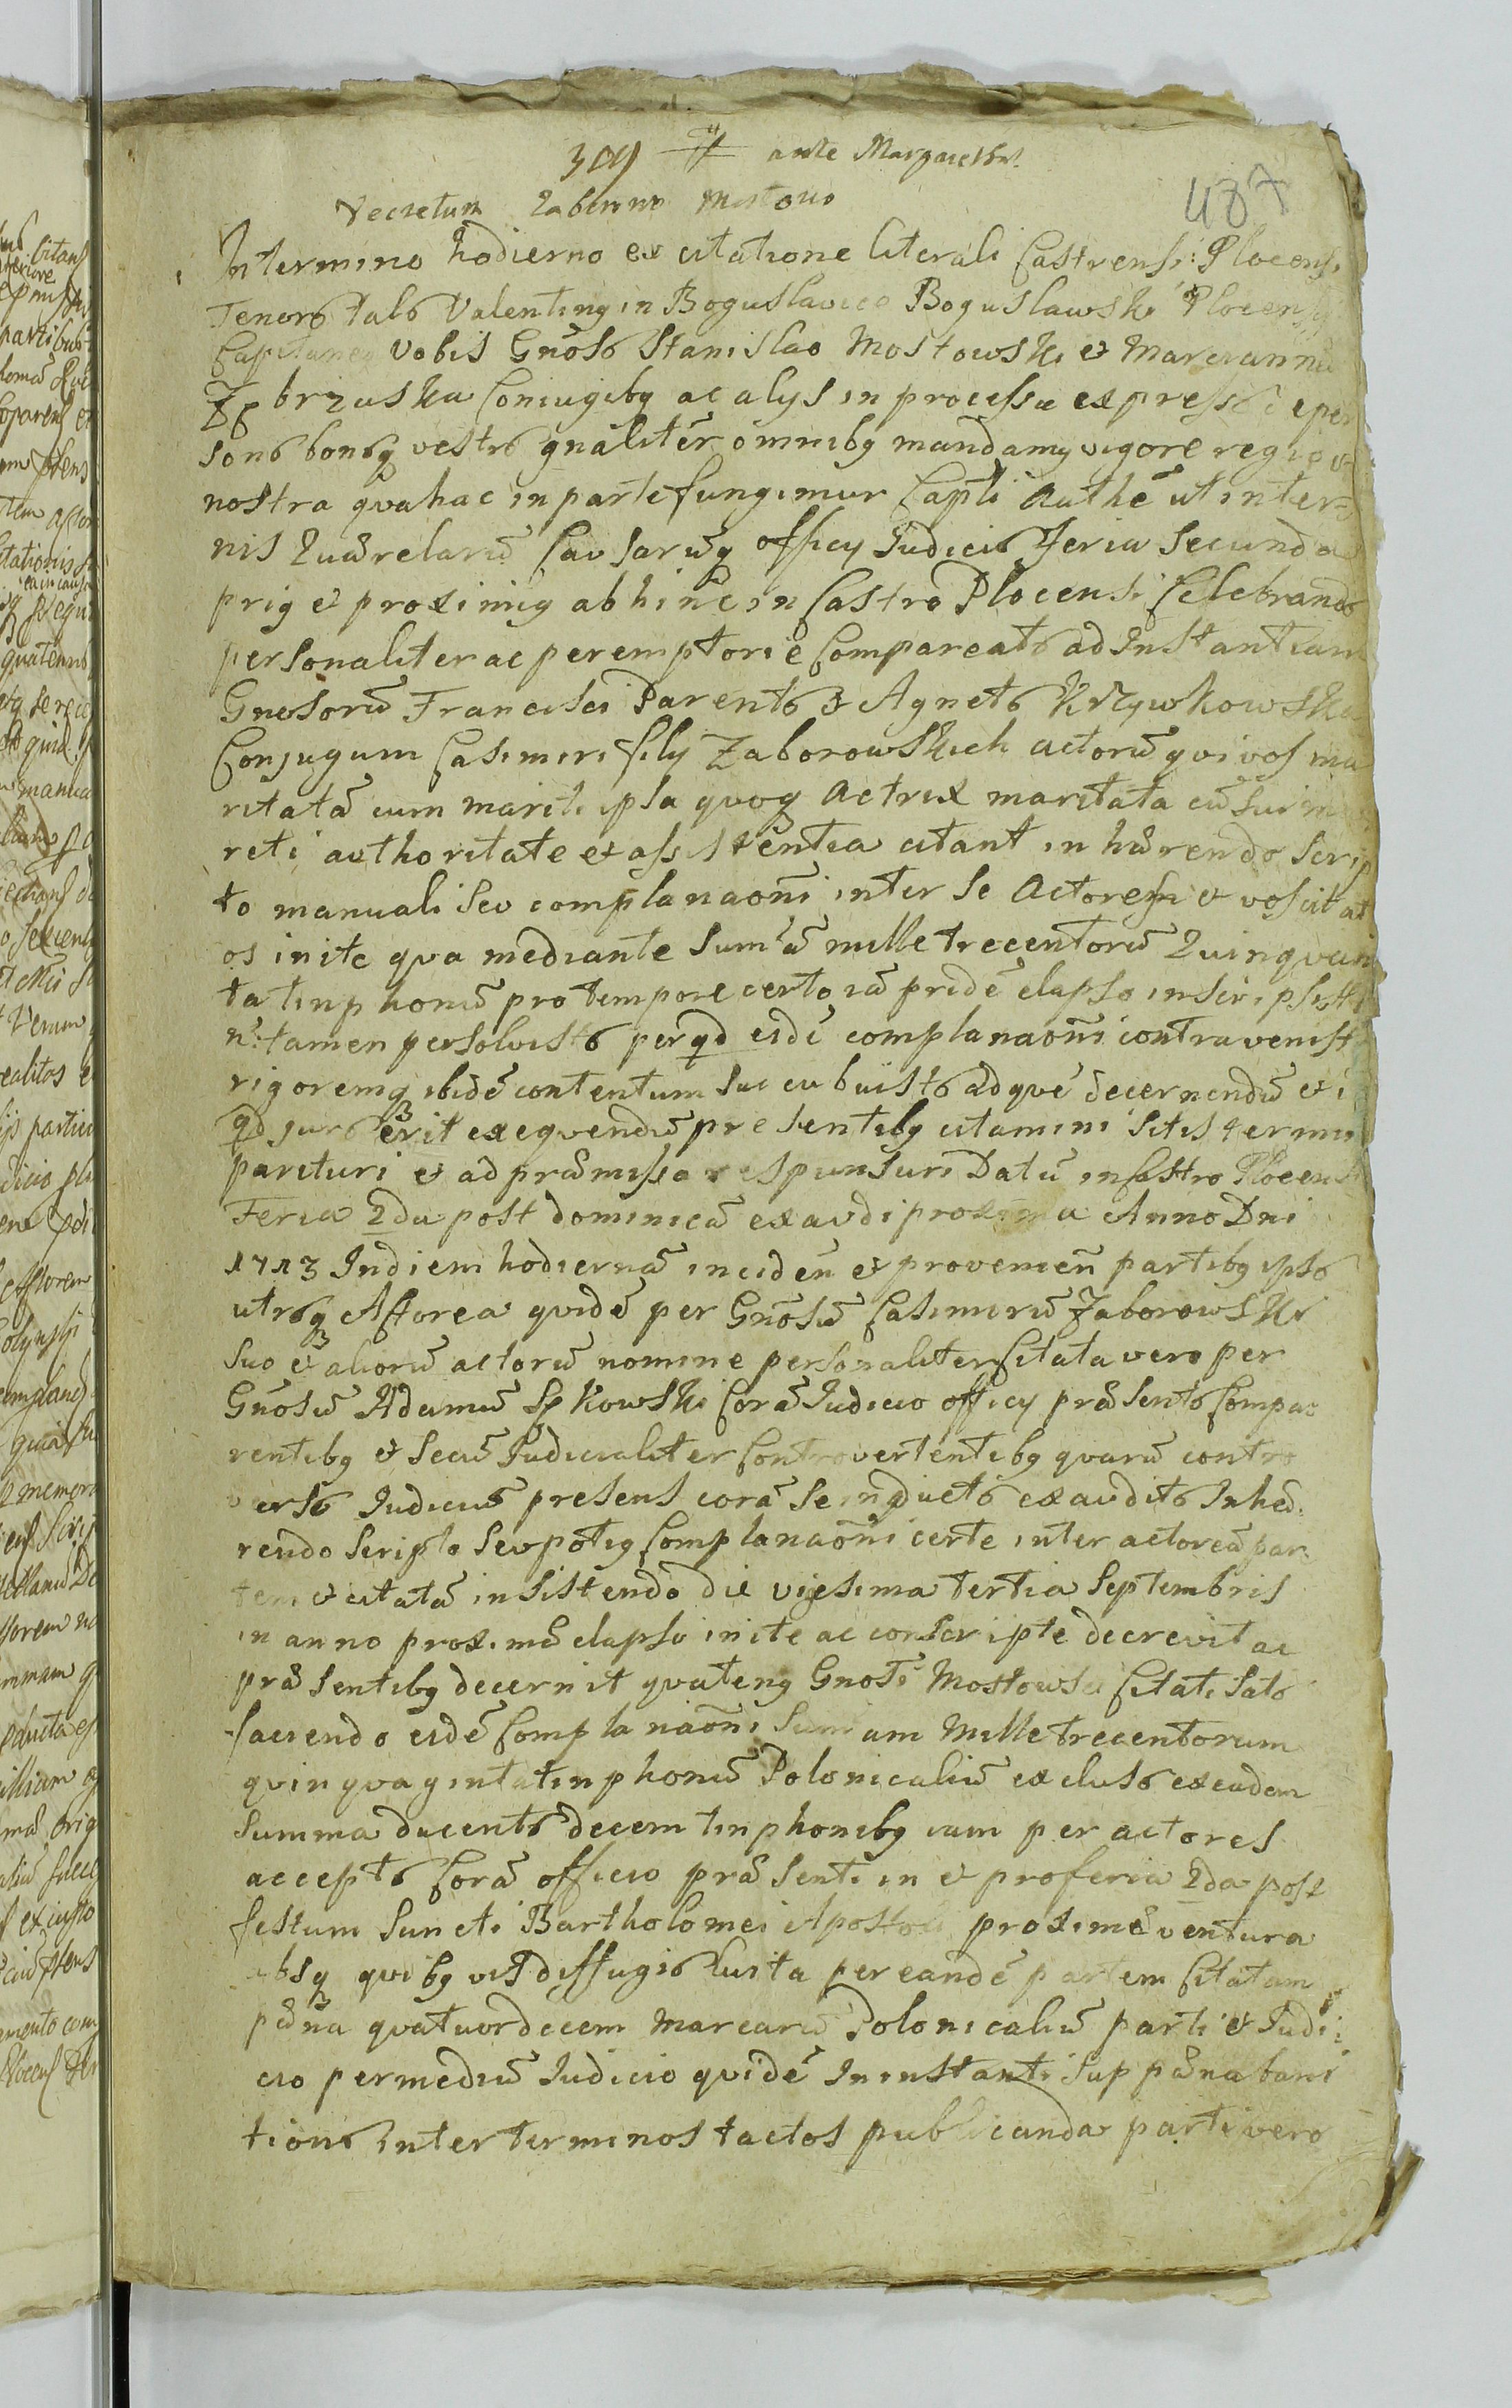 309 # ante Margareth
487
Decretum Zaborow Mostow
In termino hodierno ex citatione literali Castrensi: Plocensi
Tenoris talis Valentinꝰ in Boguslavice Boguslawski Plocensis
Capitaneꝰ Vobis Gnõsis Stanislao Mostowski et Mariannæ
Zebrzuska Coniugibꝰ ac alys in processu expressis de per
sonis bonisqꝫ vestris gnãlitēr omnibꝰ mandamꝰ vigore regio &
nostra qva hac in parte fungimur Capti Authē ut in ter=
nis Quærelarū Causarūqꝫ officy Judicii Feria secunda
prioꝫ et proximis ab hinc in Castro Plocensi Celebrandis
personaliter ac peremptorie Compareatis ad Instantiam
Gnosorū Francisci Parentis & Agnetis Krzywkowska
Conjugum Casimiri fily Zaborowskich actorū qvi vos ma
ritatā cum marito ipsa quoqꝫ Actrix maritata cū sui ma
riti authoritate et assistentia citant in hærendo scrip
to manuali seu complanaoñi inter se Actores et vos citat
os inite qva mediante Sumā mille trecentorū Quinquagin
ta tinphonū pro tempore certo iā pridē elapso inscripsistis
n: tamen persolvistis per qd eidē complanaoñi contravenistis
rigoremqꝫ ibidē contentum succubuistis ad quē decernendū et i
qd juris erit exeqvendū presentibꝰ citamini sitis termin
parituri et ad præmissa responsuri Datū in Castro Plocensi
Feria 2da post dominicā exaudi proxima Anno Dni
1713 In diem hodiernā inciden̄ et provenien̄ partibꝰ ipsis
utrisqꝫ Actorea qvidē per Gnõsū Casimirū Zaborowski
suo et aliorū actorū nomine personaliter Citata vero per
Gnõsū Adamū Łykowski Corā Judicio officy præsentis Compa
rentibꝰ et secū Judicialiter Controvertentibꝰ qvarū contro
versis Judiciū presens corā se inductis exauditis Inhæ
rendo Scripto seu potiꝰ Complanaoñi certe inter actoreā par
tem et citatā insistendo die vigesima tertia Septembris
in anno proximæ elapso inite ac conscripte decrevit ac
præsentibꝰ decernit qvatenꝰ Gnosi Mostowscy Citati satis
faciendo eidē Complanaoñi Summam Mille trecentorum
qvinqvaginta tinphonū Polonicaliū exclusis ex eadem
Summa ducentis decem tinphonibꝰ iam per actores
acceptis Corā officio præsenti in et pro feria 2da post
festum Sancti Bartholomei Apostoli proximæ ventura
absqꝫ qvibꝰ vis diffugiis Luita per eandē partem Citatam
pœna qvatuordecem Marcarū Polonicaliū parti et Judi
cio per mediū Judicio qvidē In instanti sup pœna bani
tionis inter terminos tactos publicanda parti vero